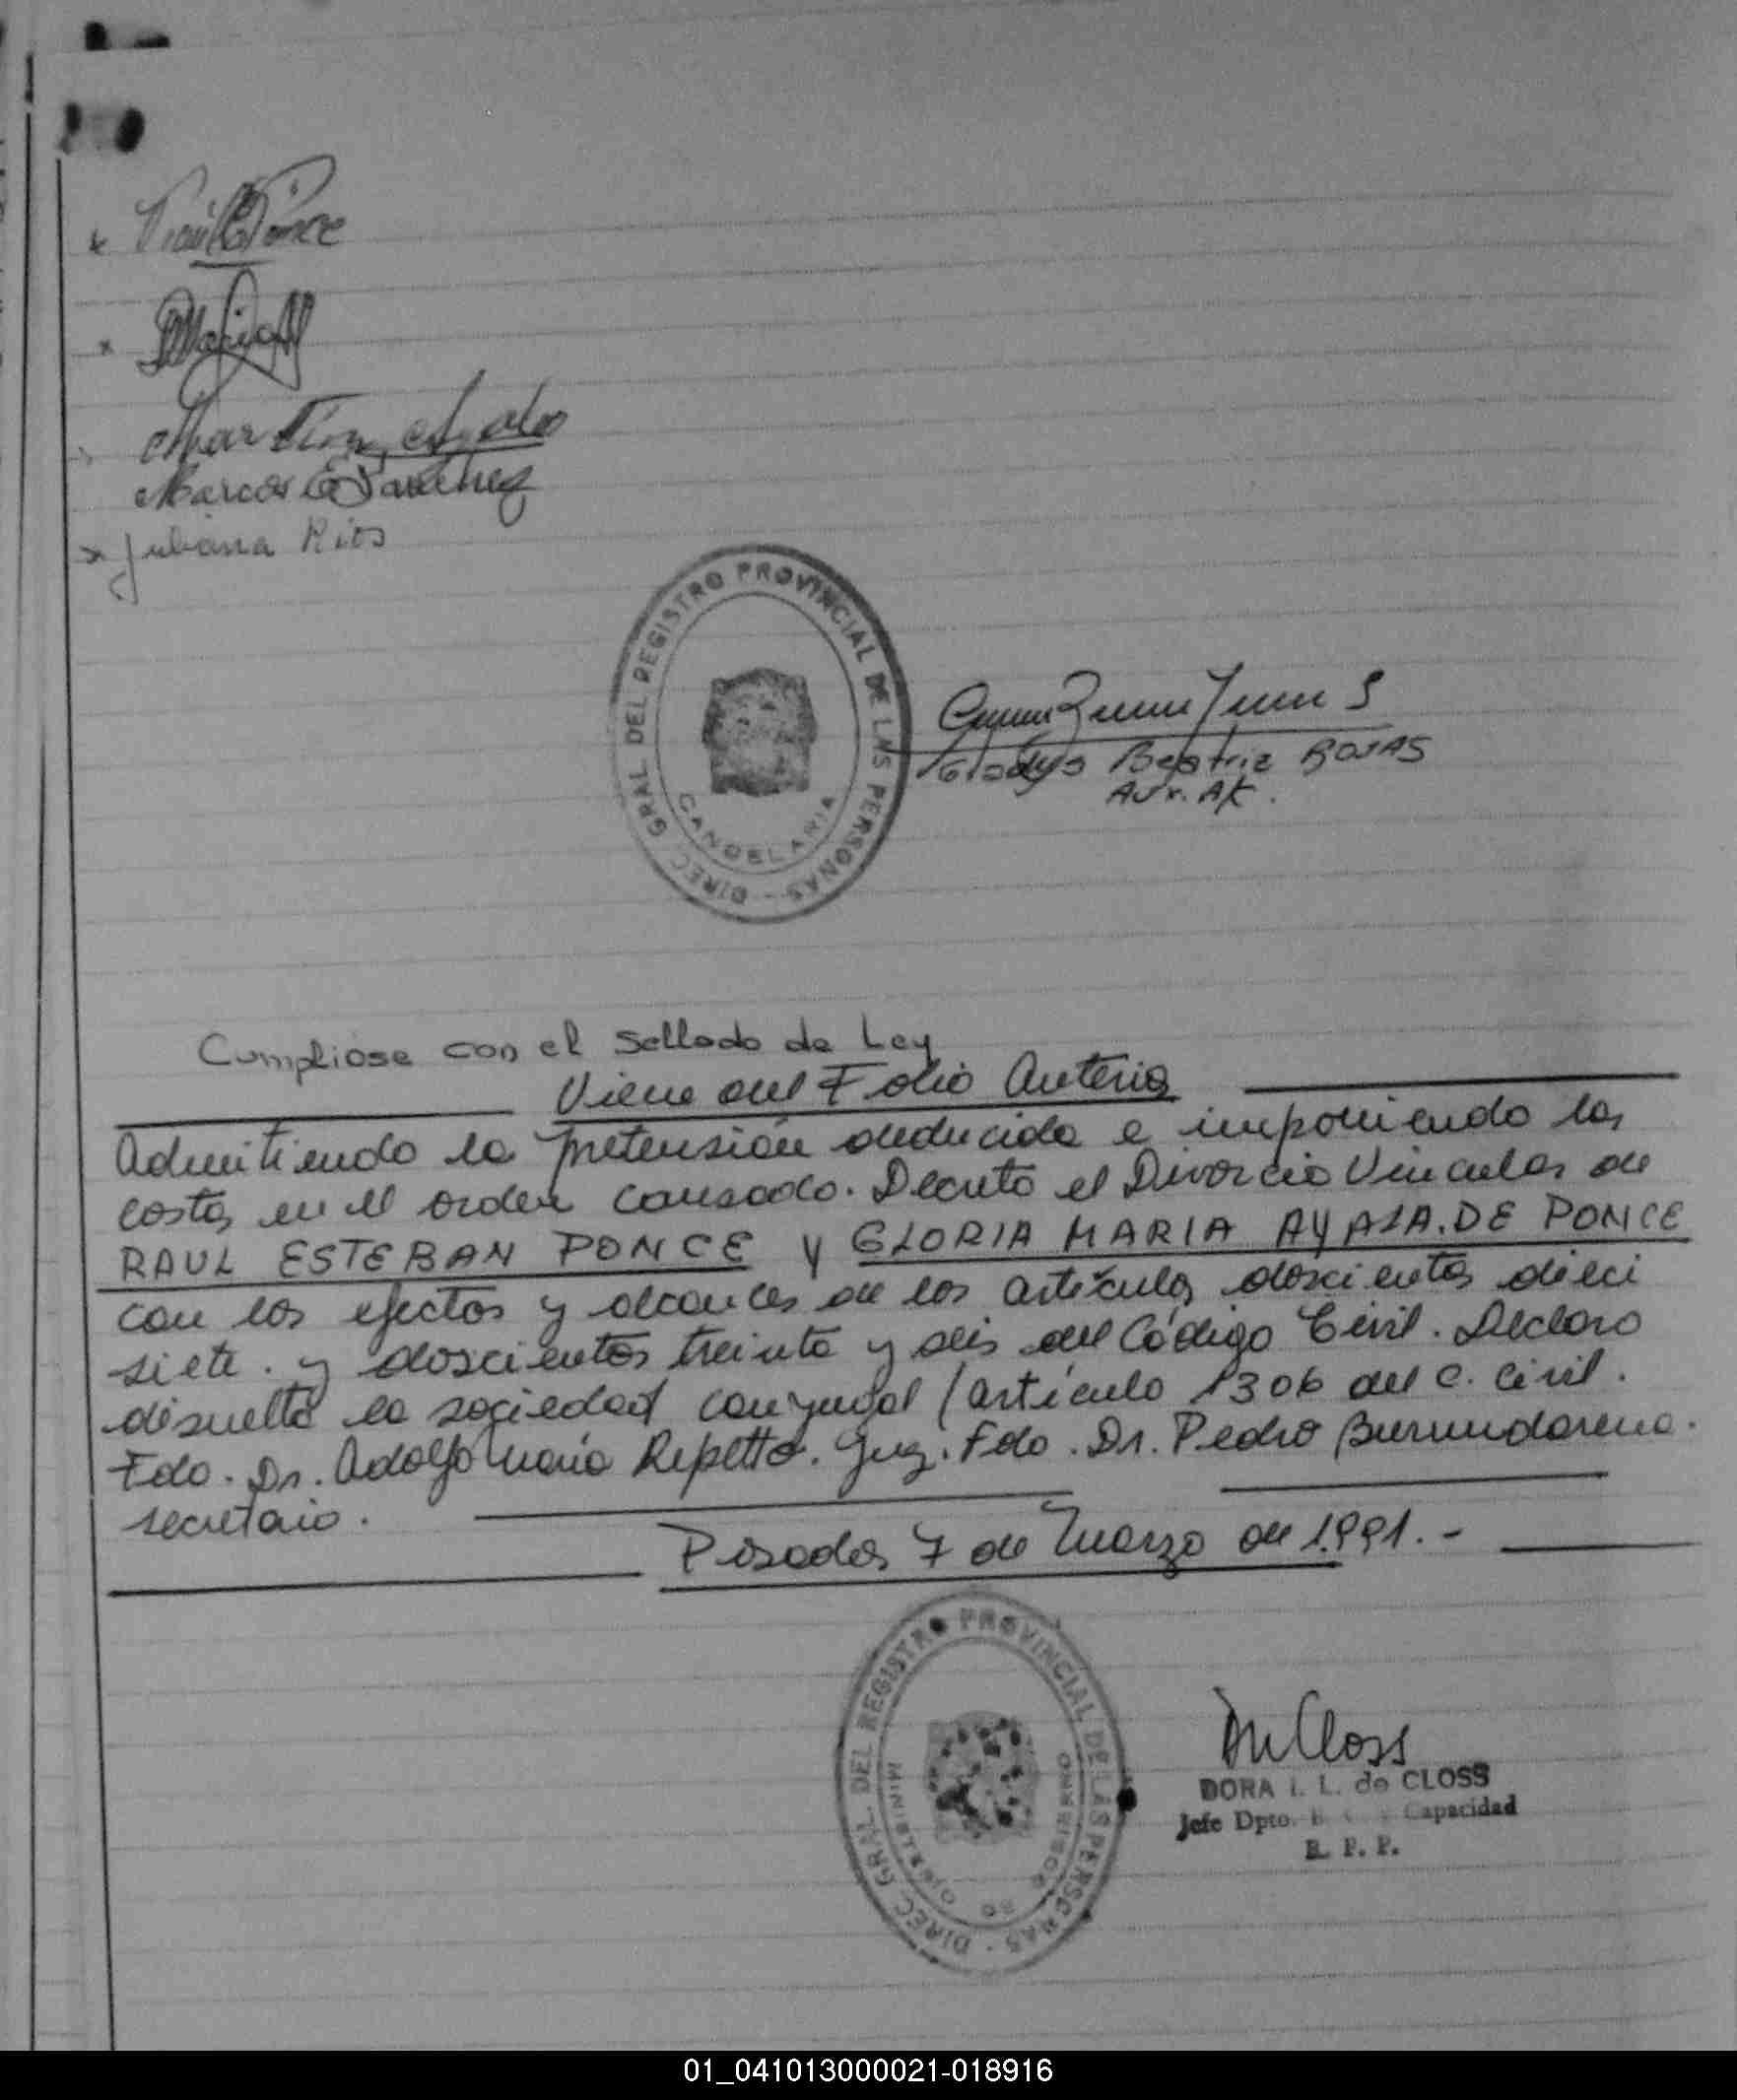 Raul E Ponce
Martin Ayala
Marcos E Sanchez
Juliana Rios
DIREC GRAL DEL REGISTRO PROVINCIAL DE LAS PERSONAS
CANDELARIA
Gladys Beatriz ROJAS
Aux. Ak.
Cumpliose con el Sellado de Ley
Viene del Folio Anterior
Admitiendo la pretensión deducida e imponiendo las
costas en el orden causado. Decreto el Divorcio Vincular de
RAUL ESTEBAN PONCE y GLORIA MARIA AYALA.DE PONCE
con los efectos y alcances de los artículos doscientos dieci
siete. y doscientos treinta y seis del Código Civil. Declaro
disuelta la sociedad conyugal (artículo 1306 del C. Civil.
Fdo. Dr. Adolfo Mario Repetto. Juez. Fdo. Dr. Pedro
secretario.
Posadas 7 de Marzo de 1991.-
DIREC GRAL DEL REGISTRO PROVINCIAL DE LAS PERSONAS
MINISTERIO DE GOBIERNO
DCloss
DORA I. L. de CLOSS
Jefe Dpto. Capacidad
R. P. P.
01_041013000021-018916